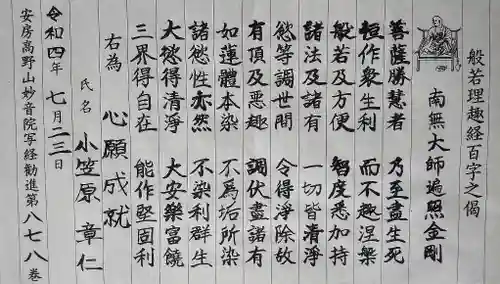 般若理趣経百字之偈
南無大師遍照金剛
菩薩勝慧者 乃至盡生死
恒作衆生利 而不趣涅槃
般若及方便 智度悉加持
諸法及諸有 一切皆清淨
慾等調世間 令得淨除故
有頂及悪趣 調伏盡諸有
如蓮體本染 不為垢所染
諸慾性亦然 不染利群生
大慾得清淨 大安樂富饒
三界得自在 能作堅固利
右為 心願成就
氏名 小笠原 章仁
令和四年 七月二三日
安房高野山妙音院写経勧進第八七八巻